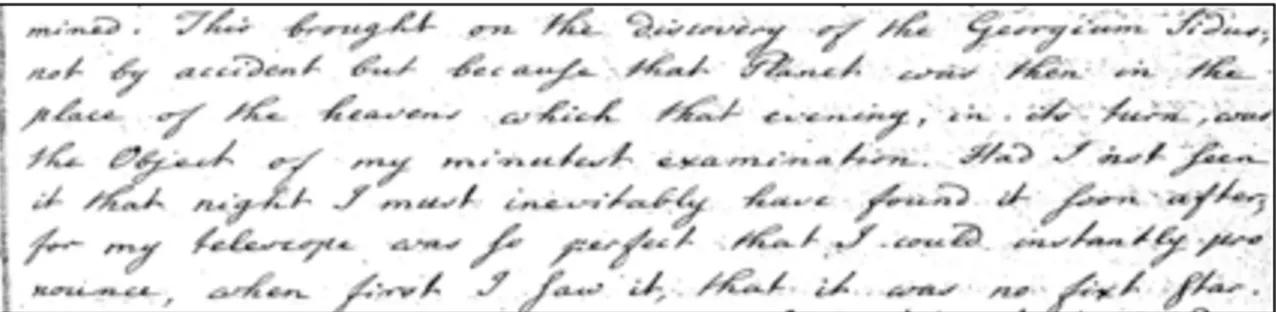 mined. This brought on the discovery of the Georgium Sidus;
not by accident but because that Planet was then in the
place of the heavens which that evening, in its turn, was
the Object of my minutest examination. Had I not seen
it that night I must inevitably have found it soon after;
for my telescope was so perfect that I could instantly pro
nounce, when first I saw it, that it was no fixt star.